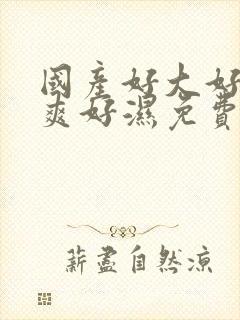 國產好大好
爽好濕免費
薪盡自然涼